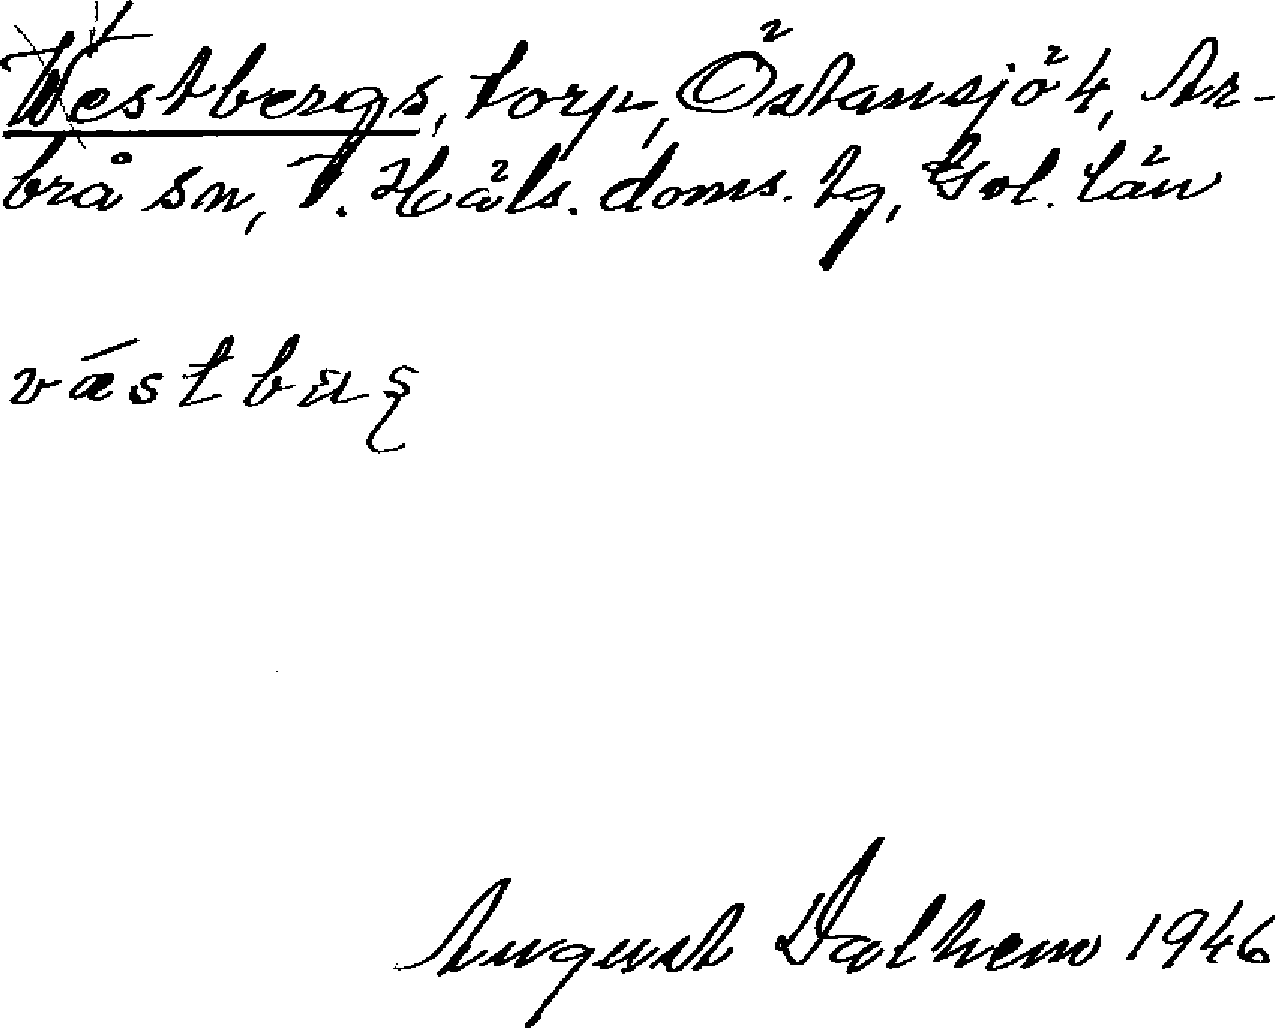 Westbergs, torp, Östansjö 4, Ar-
brå sn, V. Häls. doms. tg, Gvl. län
vǽstbaʂ
August Dalhem 1946